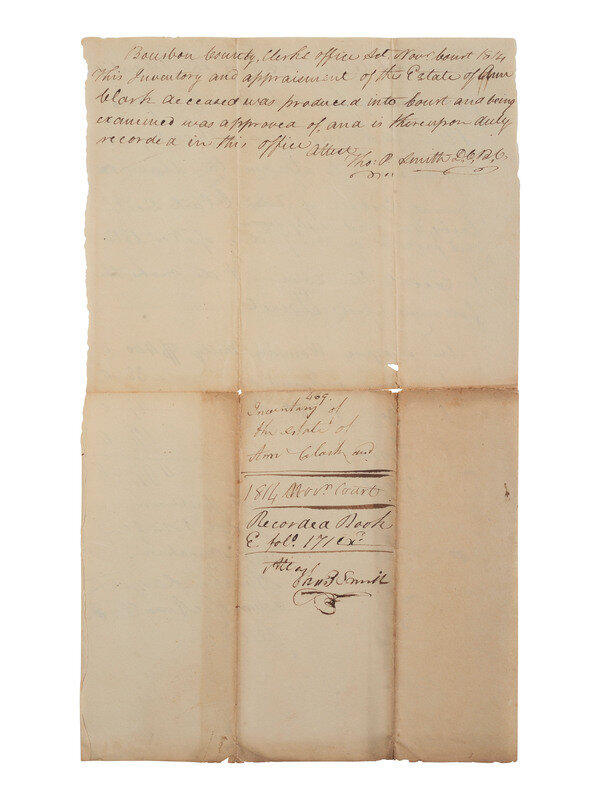 Bourbon County, Clerks office Sct. Novr Court 1814
This Inventory and appraisment of the Estate of Ann
Clark deceased was produced into Court and being
examined was approved of, and is thereupon duly
recorded in this office
Attest
Tho: P. Smith D.C.B.C.
409.
Inventary of
the Estate of
Ann Clark
1814 Novr. Court
Recorded Book
E. folo. 171
Attest
Smith